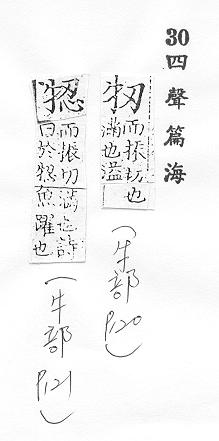 30 四聲篇海
牣
而振切也
滿也溢
(牛部 P.120)
而振切滿也詩
曰於魚躍也
(牛部 P.121)